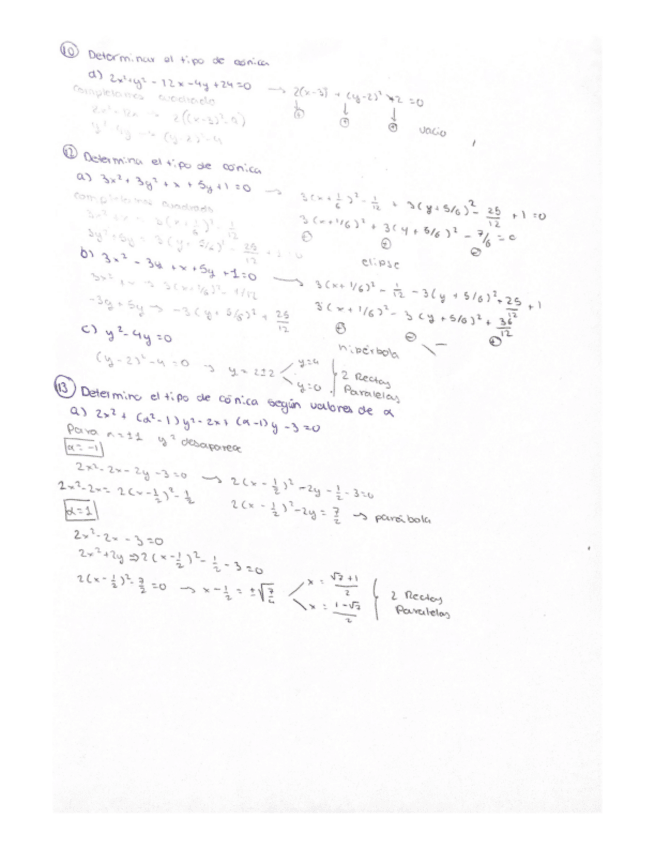 10 Determinar el tipo de cónica
d) 2x²+y²-12x-4y+24=0 → 2(x-3)² + (y-2)² +2 =0
completamos cuadrado
2x²-12x → 2((x-3)²-9)
y²-4y → (y-2)²-4
vacío
12 Determina el tipo de cónica
a) 3x²+3y²+x+5y+1=0 → 3(x+1/6)² - 1/12 + 3(y+5/6)² - 25/12 + 1 =0
completamos cuadrados
3(x+1/6)² + 3(y+5/6)² - 7/6 =0
3y²+5y = 3(y+5/6)² - 25/12
elipse
b) 3x² - 3y + x + 5y + 1=0 → 3(x+1/6)² - 1/12 - 3(y+5/6)² + 25/12 + 1
3x²+x → 3(x+1/6)² - 1/12
3(x+1/6)² - 3(y+5/6)² + 36/12
-3y+5y → -3(y+5/6)² + 25/12
hipérbola
c) y²-4y=0
(y-2)²-4=0 → y=2±2 y=4 y=0 2 Rectas Paralelas
13 Determina el tipo de cónica según valores de α
a) 2x² + (α²-1)y² - 2x + (α-1)y - 3=0
Para α=±1 y² desaparece
α=-1
2x²-2x-2y-3=0 → 2(x-1/2)² - 2y - 1/2 - 3=0
2x²-2x= 2(x-1/2)² - 1/2
2(x-1/2)² - 2y = 7/2 → parábola
α=1
2x²-2x-3=0
2x²+2y ⇒ 2(x-1/2)² - 1/2 - 3=0
2(x-1/2)² - 7/2 =0 → x-1/2 = ±√7/2 x = √7+1/2 x = 1-√7/2 2 Rectas Paralelas